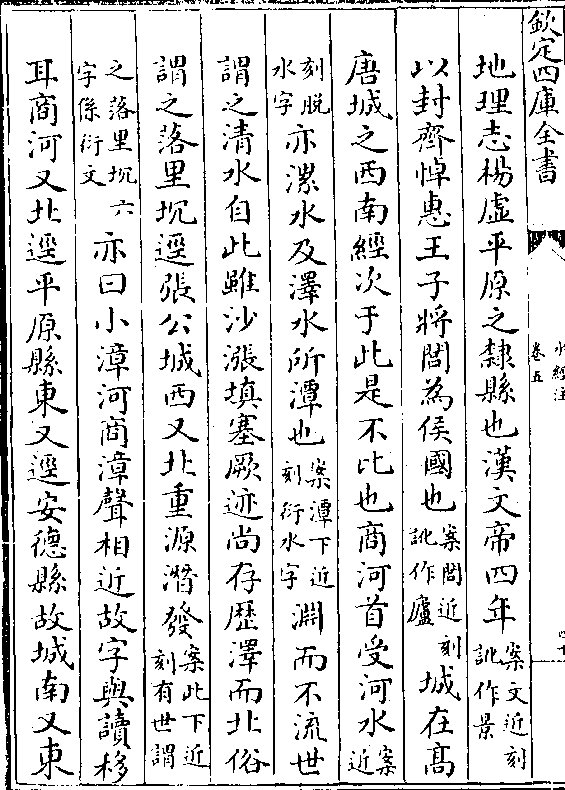 欽定四庫全書
水經注
卷五
地理志楊虛平原之隸縣也漢文帝四年案文近刻訛作景
以封齊悼惠王子將閭為侯國也案閭近刻訛作廬城在高
唐城之西南經次于此是不比也商河首受河水案近
刻脫水字亦漯水及澤水所潭也案潭下近刻衍水字淵而不流世
謂之清水自此雖沙漲填塞厥迹尚存歷澤而北俗
謂之落里坈逕張公城西又北重源潛發案此下近刻有世謂
之落里坈六字係衍文亦曰小漳河商漳聲相近故字與讀移
耳商河又北逕平原縣東又逕安德縣故城南又東